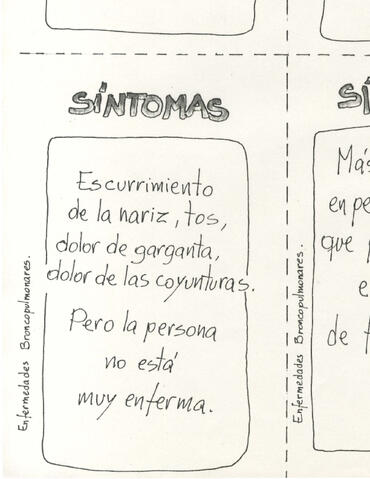 SÍNTOMAS
Escurrimiento
de la nariz, tos,
dolor de garganta,
dolor de las coyunturas.
Pero la persona
no está
muy enferma.
Enfermedades Broncopulmonares.
SÍ
Más
en pe
que
e
de
Enfermedades Broncopulmonares.